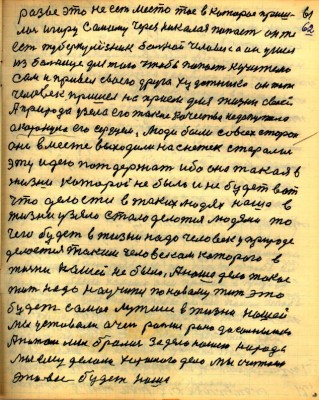 разве это не есть место тое в которое приш-
лося игорю самому через николая попасть он же
есть туберкулёзник больной человек а он ушел
из больнице для того чтобы попасть к учителю
сам и привел своего друга художника он тот
человек пришел на прием для жизни своей
А природа узнала его такие качества не допустила
его сердцем, Люди были со всех сторон
они вместе выходили на снежек старались
эту идею поддержать ибо она такая в
жизни которой не было и не будет вот
что делости в таких людях надо в
жизни узнало стало делотся людями то
чего будет в жизни надо человек у природе
делается таким человекам которого в
жизни нашей не было, А наше дело такое
жить надо научити по новому жить это
будет самое лутшее в жизни нашей
мы уставали очень рано до солнышка
А потом мы брались за дело нашего народа
мы ему делали хорошого дело мы считаем
это все будет наше
61
62